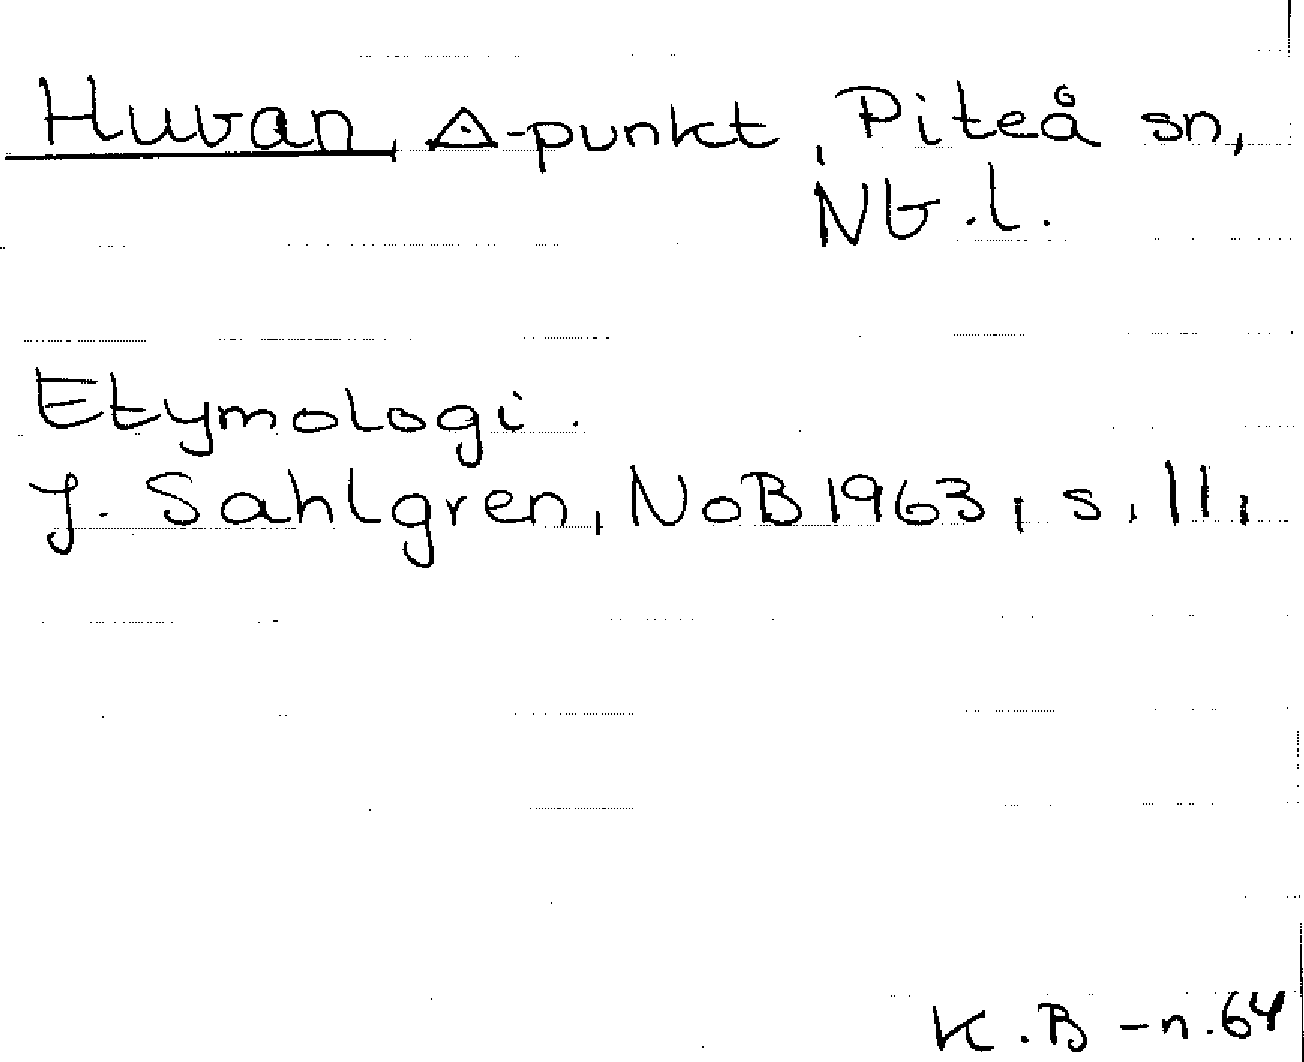 Huvan, △-punkt, Piteå sn,
Nb.l.
Etymologi.
J. Sahlgren, NoB 1963, s. 11,
K.B-n.64